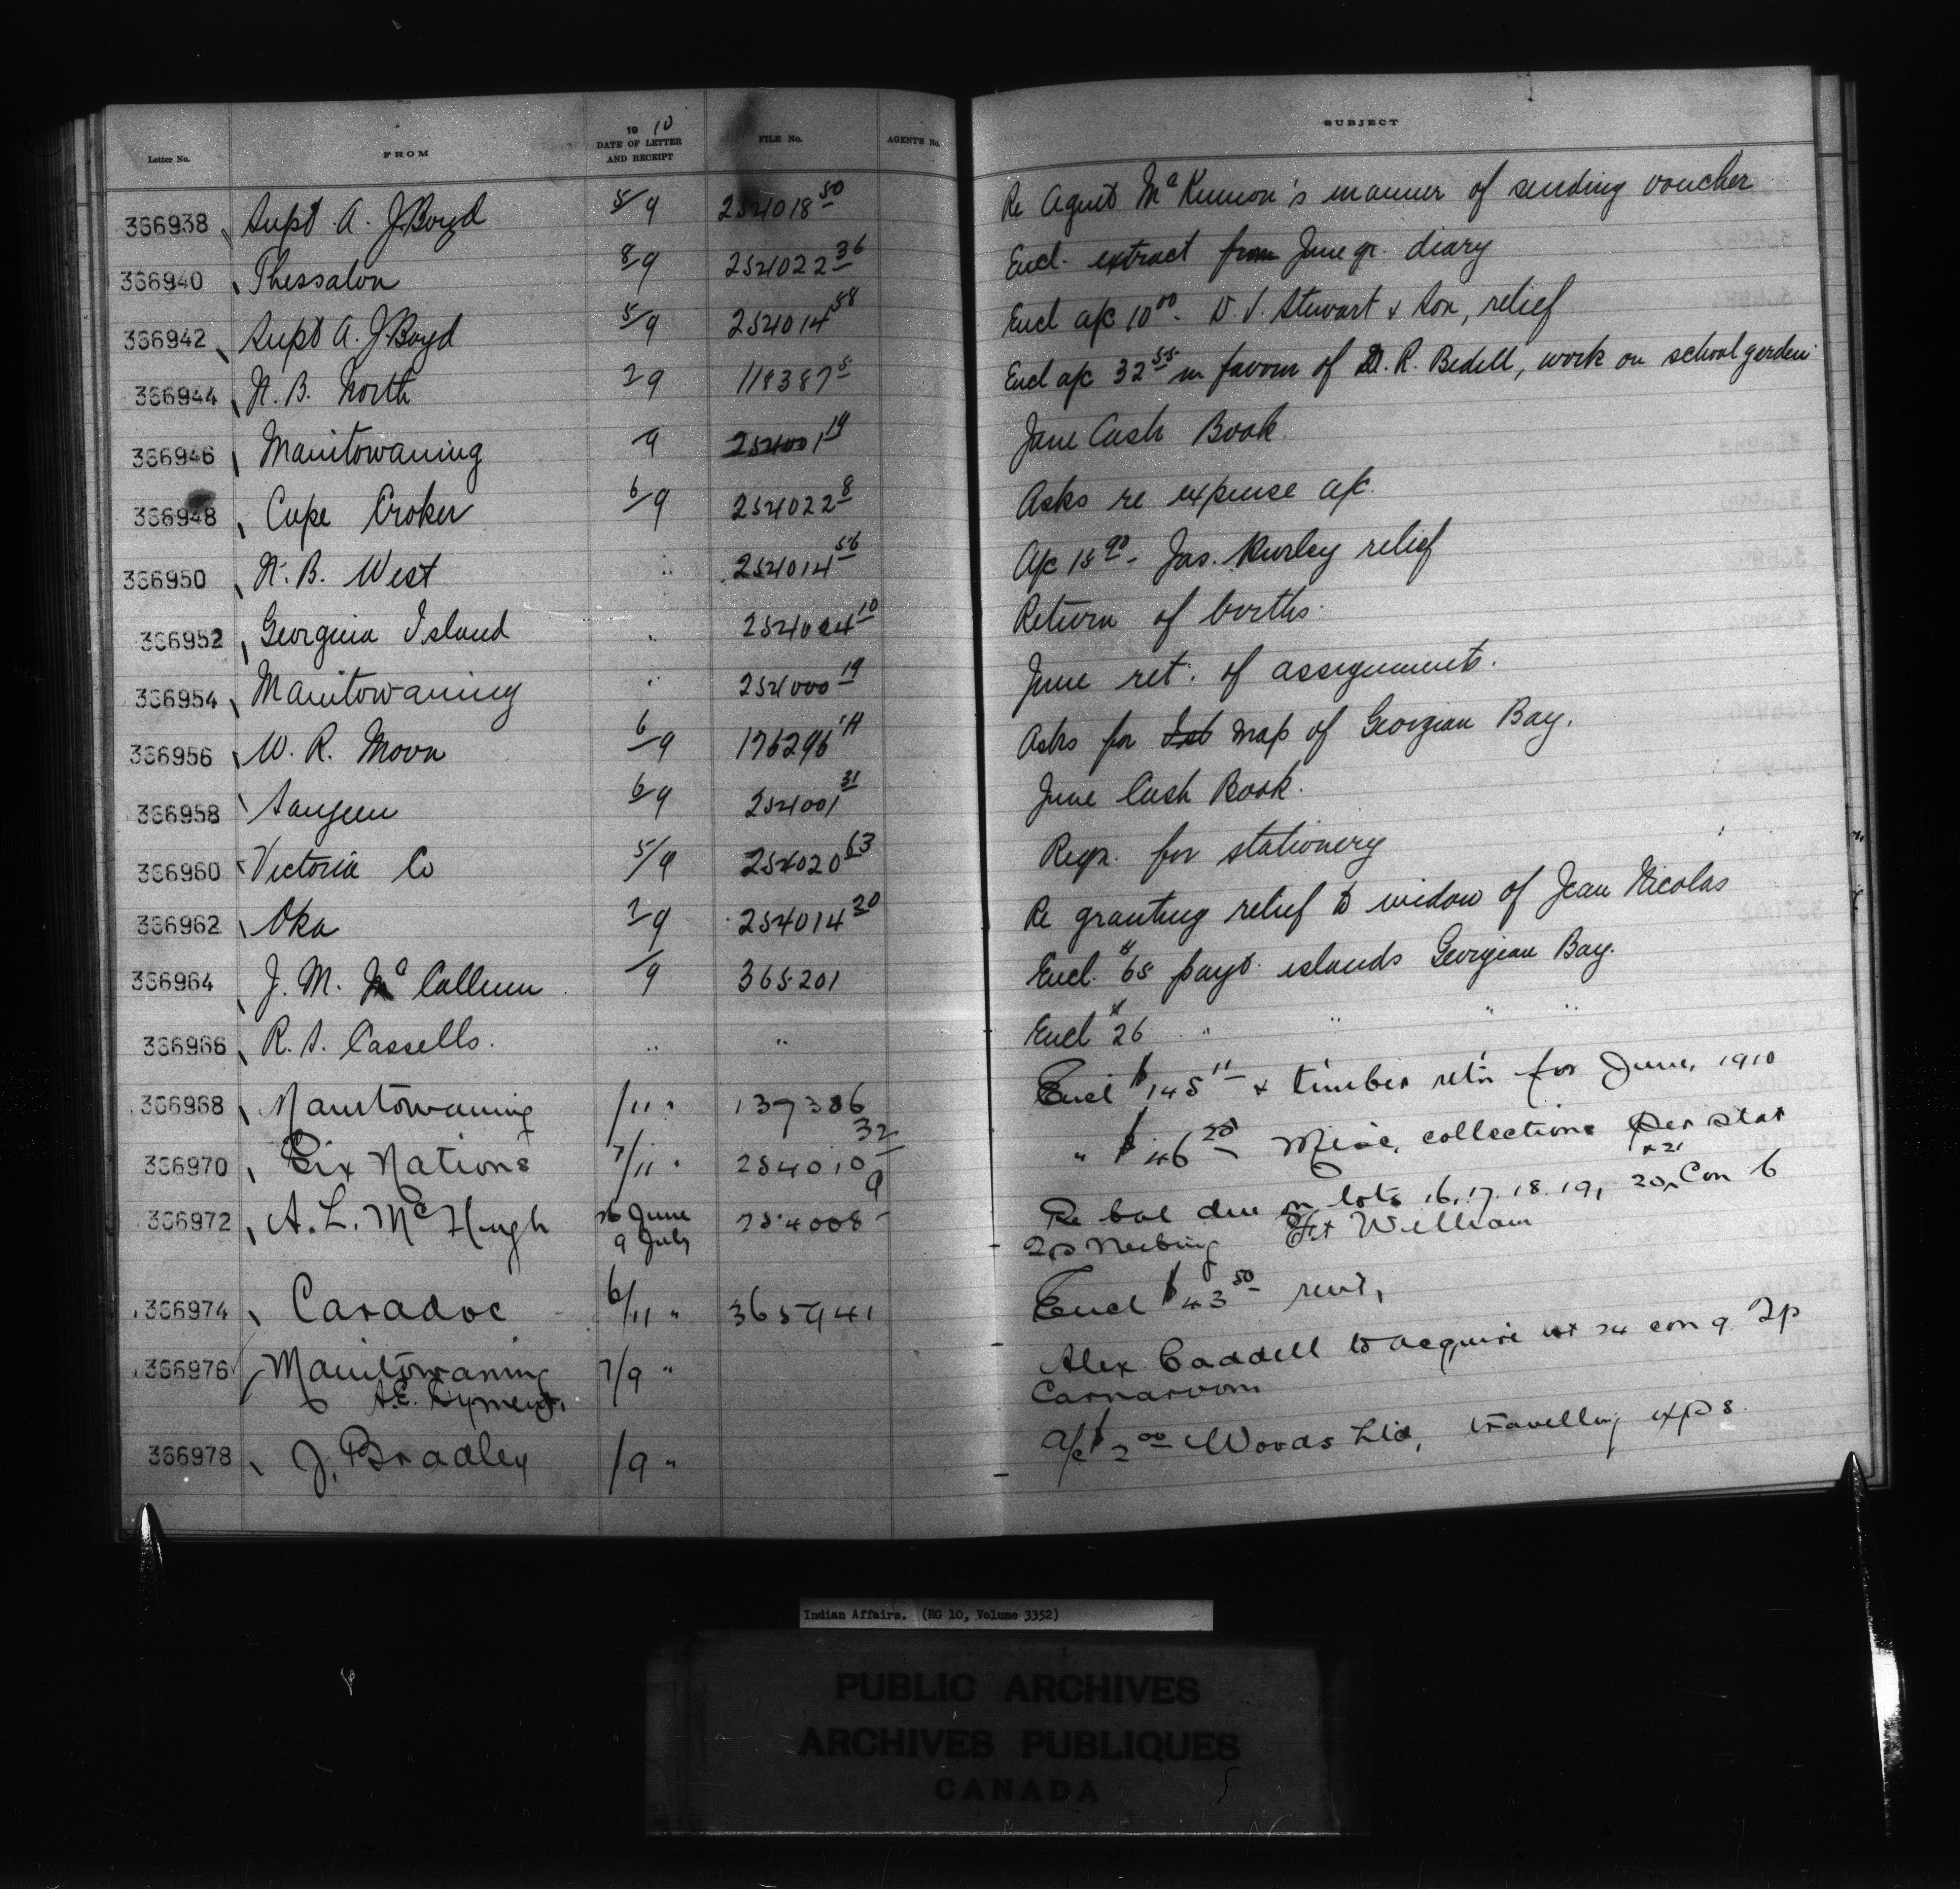 Letter No. FROM 19 10 DATE OF LETTER AND RECEIPT FILE No. AGENT'S No. SUBJECT
366938 Supt A. J. Boyd 5/9 254018 50 Re Agent McKinnon's manner of sending voucher
366940 Thessalon 8/9 254022 36 Encl. extract from June qr. diary
366942 Supt A. J. Boyd 5/9 254014 58 Encl a/c 10 00 - D. S. Stewart & Son, relief
366944 N. B. North 2 9 118387 5 Encl a/c 32 55 in favour of D. R. Bedell, work on school garden
366946 Manitowaning 9 254001 19 June Cash Book.
366948 Cape Croker 6/9 254022 8 Asks re expense a/c.
366950 N. B. West " 254014 56 A/c 15 90 - Jas. Hurley relief
366952 Georgina Island " 254024 10 Return of births.
366954 Manitowaning " 254000 19 June ret. of assignments.
366956 W. R. Moon 6/9 176296 1A Asks for map of Georgian Bay.
366958 Saugeen 6/9 254001 31 June Cash Book.
366960 Victoria Co 5/9 254020 63 Reqn. for stationery
366962 Oka 7/9 254014 20 Re granting relief to widow of Jean Nicolas
366964 J. M. McCallum /9 365201 Encl. $65 payt. islands Georgian Bay.
366966 R. S. Cassells. " " Encl $26 " " " "
366968 Manitowaning /11 " 137386 Encl $145 11 & timber ret'n for June, 1910
366970 Six Nations 7/11 " 254010 32 " $46 20 Misc. collections per stat
366972 A. L. McHugh 26 June 254008 9 Re bal due on lots 16, 17, 18, 19, 20, & 21 Con 6
9 July Tp Neebing Ft William
366974 Caradoc 6/11 " 365941 Encl $43 50 rent,
366976 Manitowaning 7/9 " Alex Caddell to acquire lot 24 con 9. Tp
A.E. Dyment. Carnarvon
366978 J. Bradley /9 " A/c $2 00 Woods Ltd, travelling exps.
Indian Affairs. (RG 10, Volume 3352)
PUBLIC ARCHIVES
ARCHIVES PUBLIQUES
CANADA